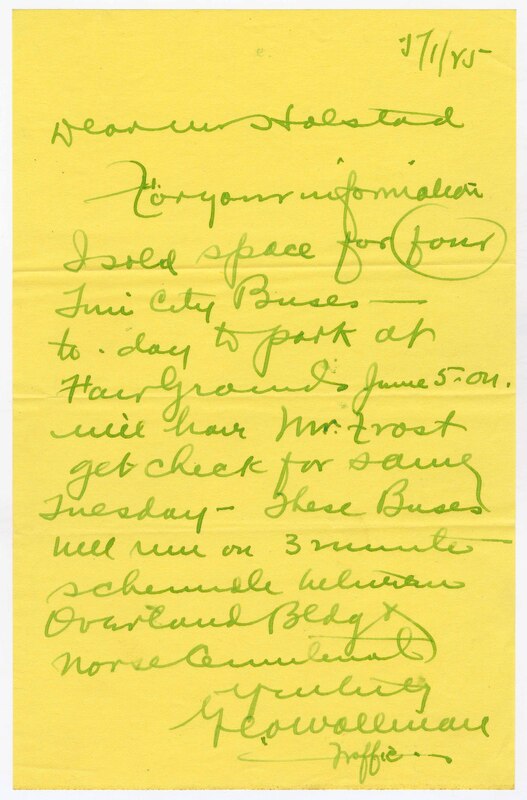 5/1/25
Dear Mr Holstad
For your information
I sold space for four
Twin City Buses —
to-day to park at
Fair Grounds June 5-on.
will have Mr. Frost
get check for same
Tuesday — These Buses
will run on 3 minute
schedule between
Overland Bldg &
Norse Centennial
Geo Wollman
Traffic